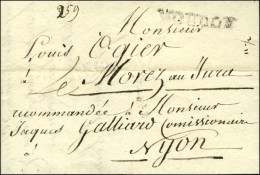 259
MOUDON
Monsieur
Louis Ogier
à
Le Morez au Jura
recommandée à Monsieur
Jaques Galliard Comissionaire
à
Nyon